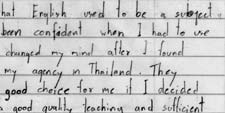 hat English used to be a subject
been confident when I had to use
changed my mind after I found
my agency in Thailand. They
good choice for me if I decided
a good quality teaching and sufficient